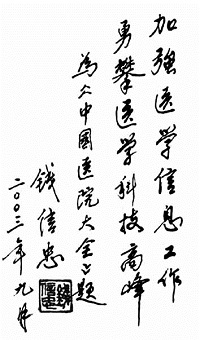 加强医学信息工作
勇攀医学科技高峰
为《中国医院大全》题
钱信忠
二〇〇三年九月